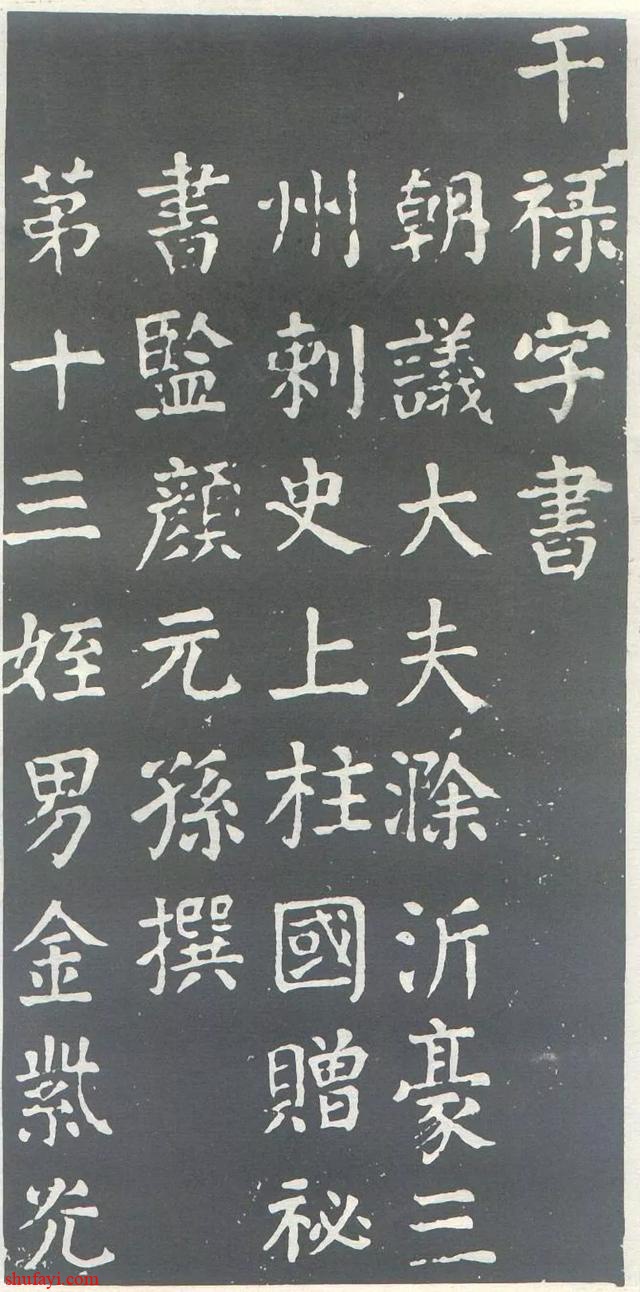 干禄字書
朝議大夫滁沂豪三
州刺史上柱國贈祕
書監顔元孫撰
第十三姪男金紫光
shufayi.com